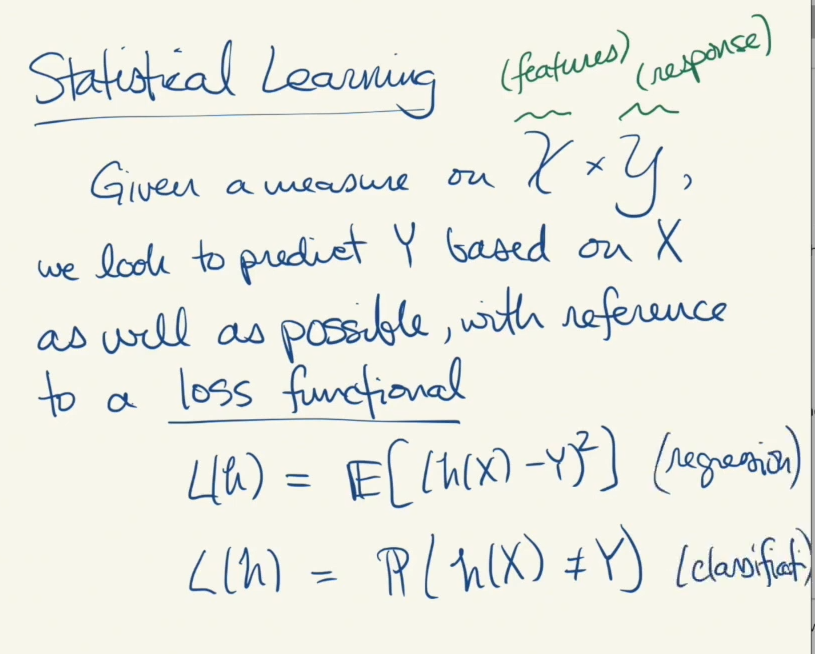 Statistical Learning (features) (response)
Given a measure on 𝒳 × 𝒴,
we look to predict Y based on X
as well as possible, with reference
to a loss functional
L(h) = 𝔼[(h(X) - Y)²] (regression)
L(h) = ℙ(h(X) ≠ Y) (classificat)